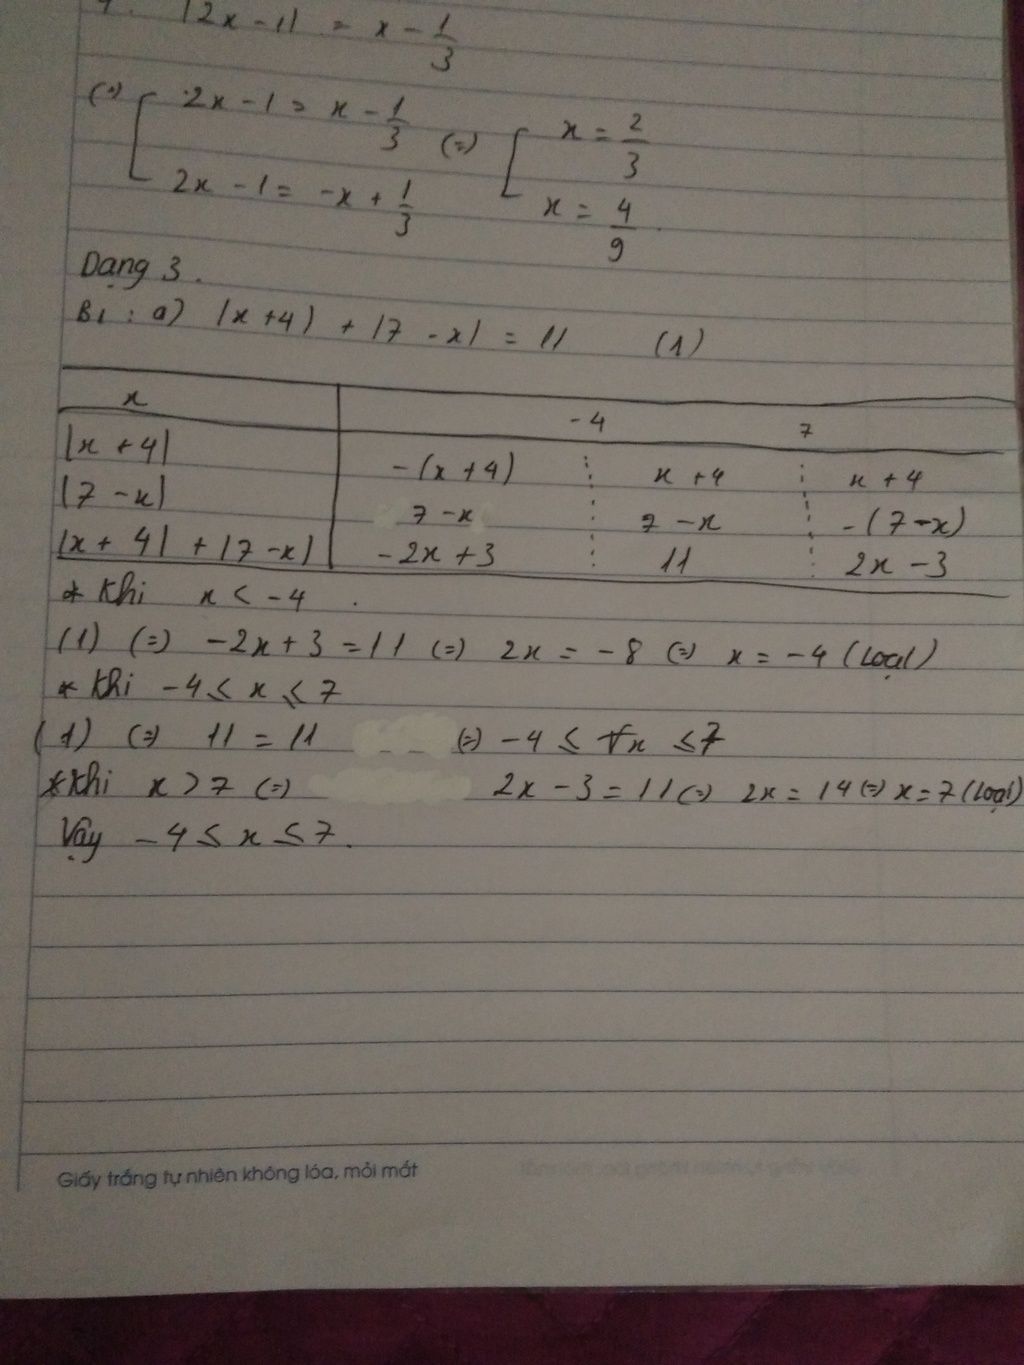 |2x - 1| = x - 1/3
(=) [ 2x - 1 = x - 1/3 (=) [ x = 2/3
2x - 1 = -x + 1/3 x = 4/9
Dạng 3.
B1 : a) |x + 4) + |7 - x| = 11 (1)
x -4 7
|x + 4| -(x + 4) x + 4 x + 4
|7 - x| 7 - x 7 - x -(7 - x)
|x + 4| + |7 - x| -2x + 3 11 2x - 3
* Khi x < -4 .
(1) (=) -2x + 3 = 11 (=) 2x = -8 (=) x = -4 (loại)
* Khi -4 ≤ x ≤ 7
(1) (=) 11 = 11 (=) -4 ≤ ∀x ≤ 7
* Khi x > 7 (=) 2x - 3 = 11 (=) 2x = 14 (=) x = 7 (loại)
Vậy -4 ≤ x ≤ 7.
Giấy trắng tự nhiên không lóa, mỏi mắt